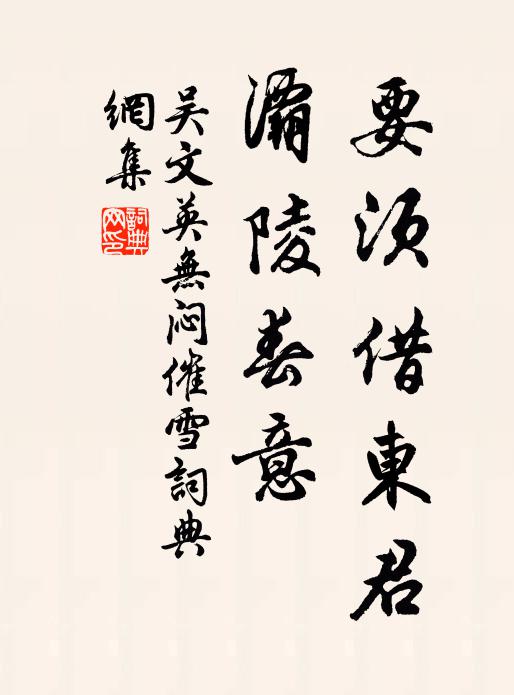 要須借東君
灞陵春意
吴文英無悶催雪詞典
網集
詞典
网印